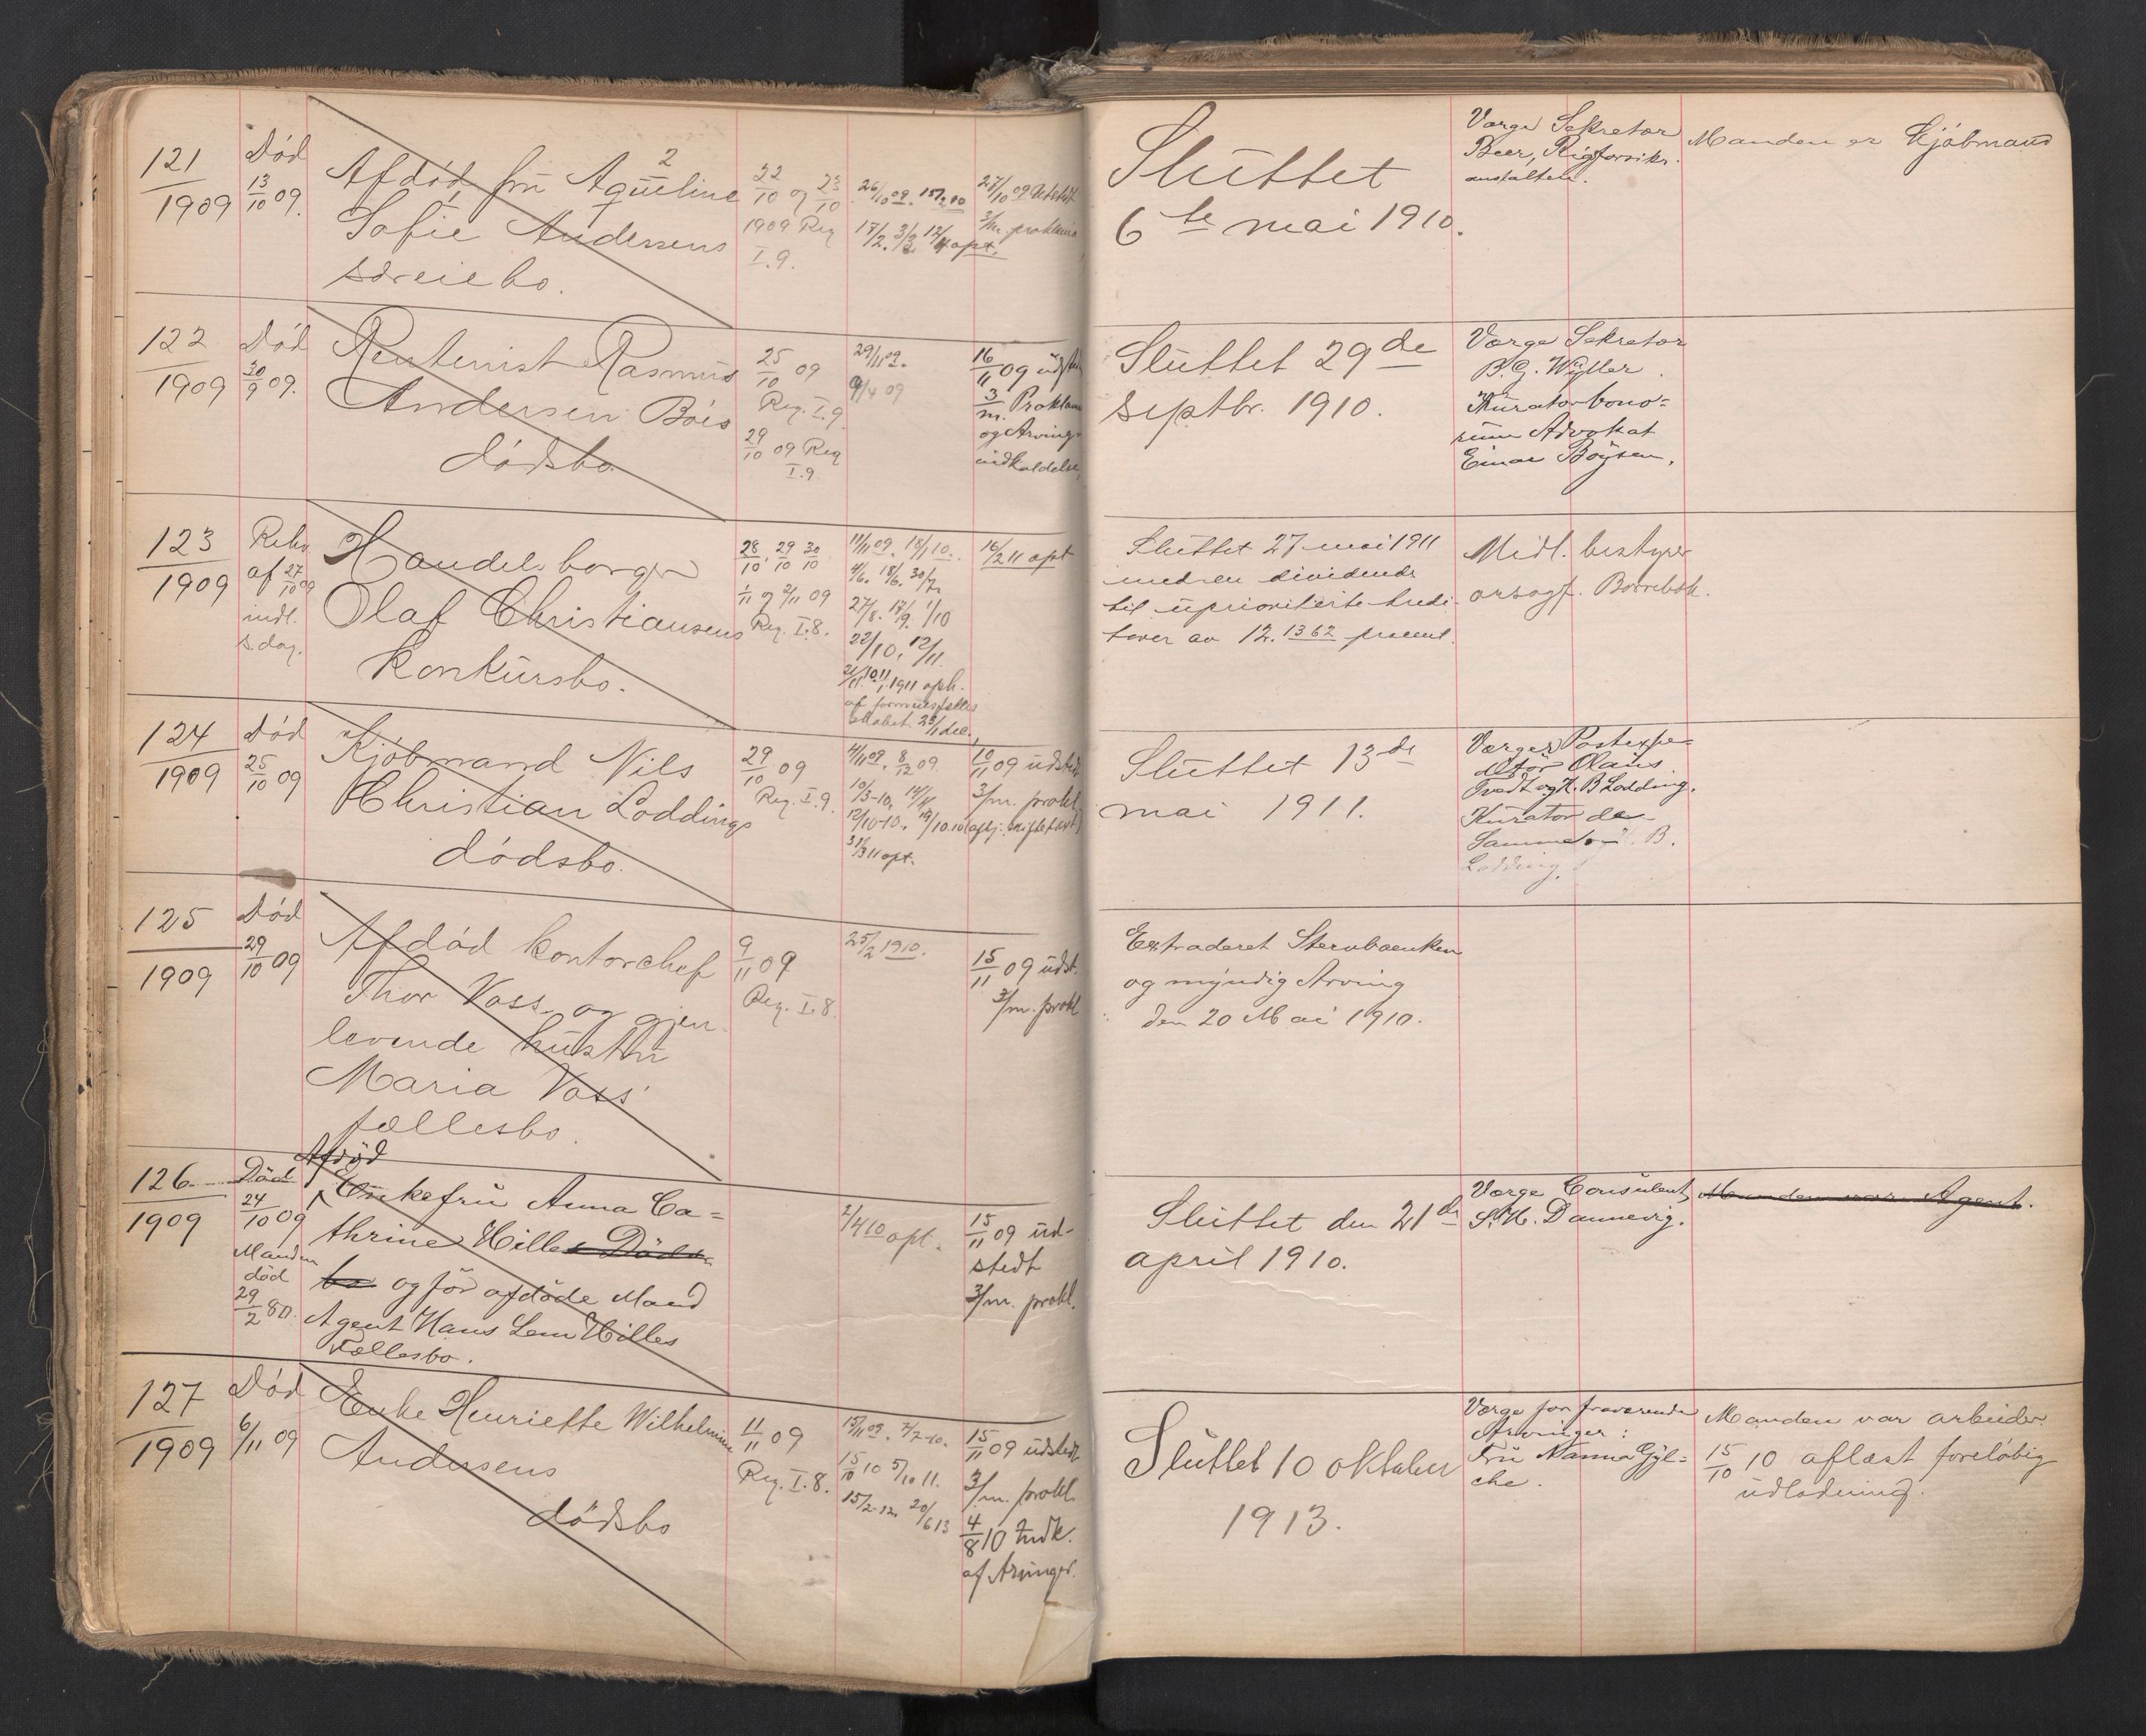 121
1909
Död
13/10 09.
2
Afdöd fru Aqueline
Sofie Andersens
særeiebo.
22/10 og 23/10
1909 Reg
I.9.
26/10 09. 15/2 10
17/2. 3/3. 12/4 opt.
27/10 09
3/m. proklama
Sluttet
6te mai 1910.
Værge Sekretær
Beer, Rigsforsikr.
anstalten.
Manden er Kjöbmand
122
1909
Död
30/9 09.
Rentenist Rasmus
Andersen Böis
dödsbo.
25/10 09
Reg. I.9.
29/10 09 Reg
I.9.
29/11 09.
9/4 09
16/11 09
3/m. Proklama
og Arvings
indkaldelse,
Sluttet 29de
septbr. 1910.
Værge Sekretær
B. G. Wyller.
Kurator bono=
rum Advokat
Einar Böysen.
123
1909
Rekv.
af 27/10 09
indl.
s. dag.
Handelsborger
Olaf Christiansens
konkursbo.
28/10, 29/10 30/10
1/11 og 2/11 09
Reg. I.8.
11/11 09. 18/1 10.
4/6. 18/6. 30/7.
27/8. 17/9. 1/10
22/10, 12/11.
1911 oph.
af formuesfælles
skabet
16/2 11 opt
Sluttet 27 mai 1911
med en dividende
til uprioriterte kredi
torer av 12.1362 procent.
Midl. bestyrer
orsagf. Borrebæk.
124
1909
Död
25/10 09
Kjöbmand Nils
Christian Loddings
dödsbo.
29/10 09
Reg. I.9.
4/11 09. 8/12 09.
10/3-10, 14/4
12/10-10. 19/10.10 (aflj. skiftetakst)
31/3 11 opt.
10/11 09 udstedt
3/m. prokl.
Sluttet 13de
mai 1911.
Værger Postexpe=
ditör Olaus
Tvedt og H. B Lodding.
Kurator den
Samme H. B.
Lodding.
125
1909
Död
29/10 09
Afdöd kontorchef
Thor Voss og gjen
levende hustru
Maria Voss'
fællesbo.
9/11 09
Reg. I.8.
25/2 1910.
15/11 09 udst.
3/m. prokl
Extraderet Stervboenken
og myndig Arving
den 20 Mai 1910.
126
1909
Död
24/10 09
Manden
död
29/2 80.
Afdöd
Enkefru Anna Ca=
thrine Hilles Döds
bo og för afdöde Mand
Agent Hans Lem Hilles
Fællesbo.
2/4 10 opt.
15/11 09 ud-
stedt
3/m. prokl.
Sluttet den 21de
april 1910.
Værge Consulent
S. H. Dannevig.
Manden var Agent.
127
1909
Död
6/11 09
Enke Henriette Wilhelmine
Andersens
dödsbo
11/11 09
Reg. I.8.
15/11 09. 2/7-10.
15/10 10 5/10 11.
15/2-12. 20/6 13
15/11 09 udstedt
3/m. prokl.
4/8 10 Indk.
af Arvinger.
Sluttet 10 oktober
1913.
Værge for fraværende
Arvinger:
Fru Nanna Gyl=
che.
Manden var arbeider.
15/10 10 aflæst foreløbig
udlodning.